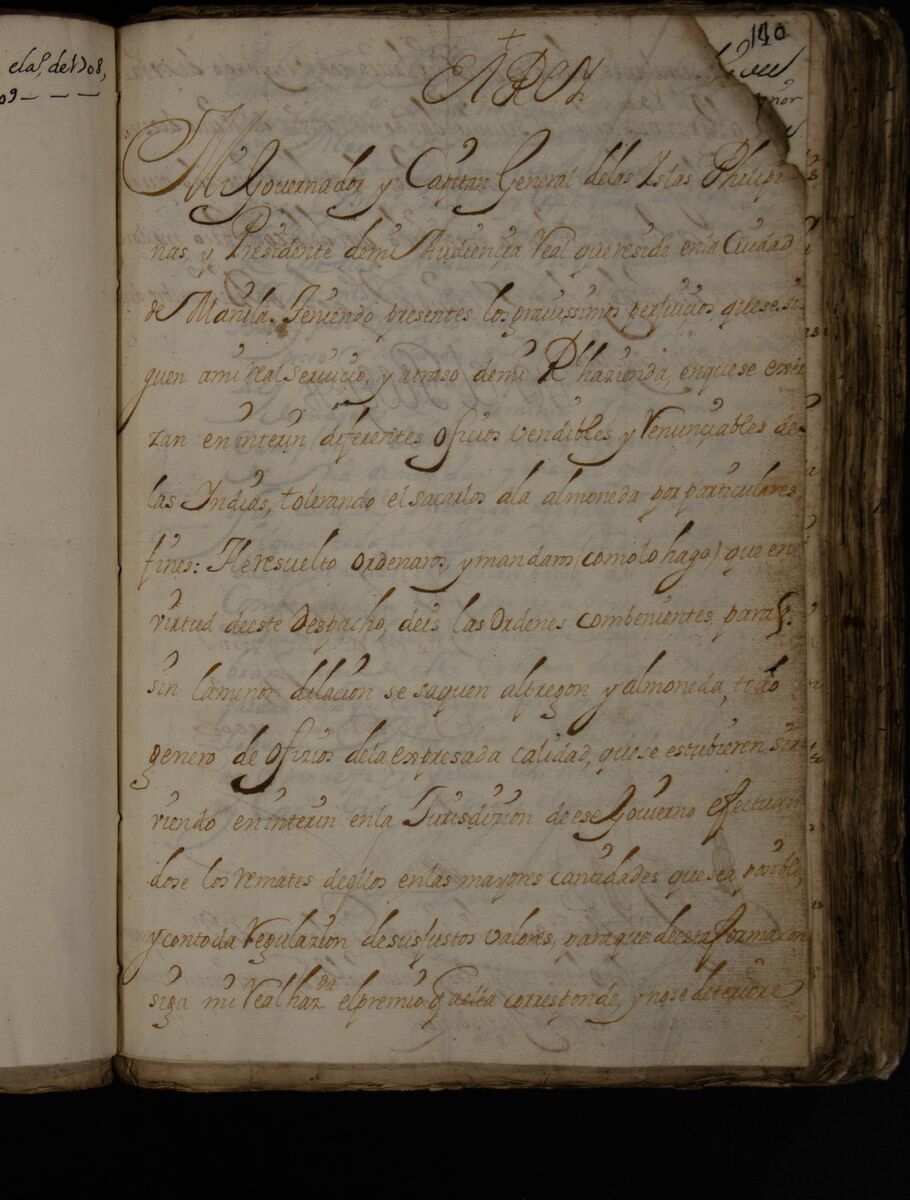 el a.s de 1708,
09 — — —
140
+
EL REY
Mi Governador y Capitan General delas Islas Philipi
nas, y Presidente demi Audiençia Real que reside enla Ciudad
de Manila. Teniendo presentes los gravissimos perjuiçios que se si
guen ami real servicio, y atraso demi Rl hazienda, en que se exer
zan en interin diferentes oficios vendibles, y Renunçiables de
las Yndias, tolerando el sacarlos ala almoneda por particulares
fines: He resuelto ordenaros, y mandaros (como lo hago) que en
virtud deeste Despacho, deis las ordenes combenientes, para q.
sin la menor dilacion se saquen al pregon y almoneda, todo
genero de ofizios dela expresada calidad, que se estubieren sir
viendo en interin en la Jurisdizion de ese Govierno efectuan
dose los remates deellos en las mayores cantidades que sea posible,
y con toda Regulazion de sus justos valores, para que deesta forma con
siga mi Real haz.da el premio q̃ aella corresponde, y no se deteriore